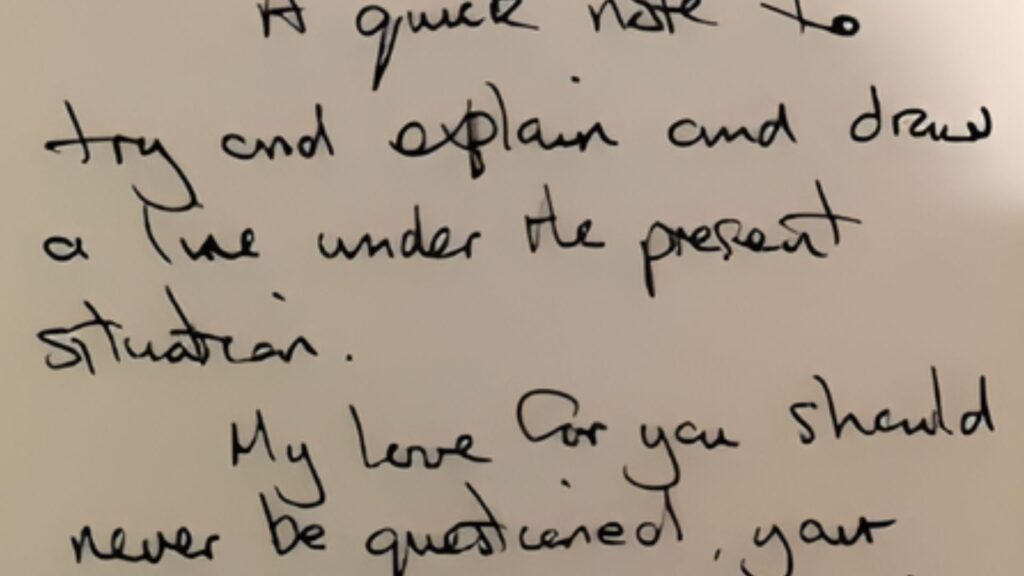 A quick note to
try and explain and draw
a line under the present
situation.
My love for you should
never be questioned, your